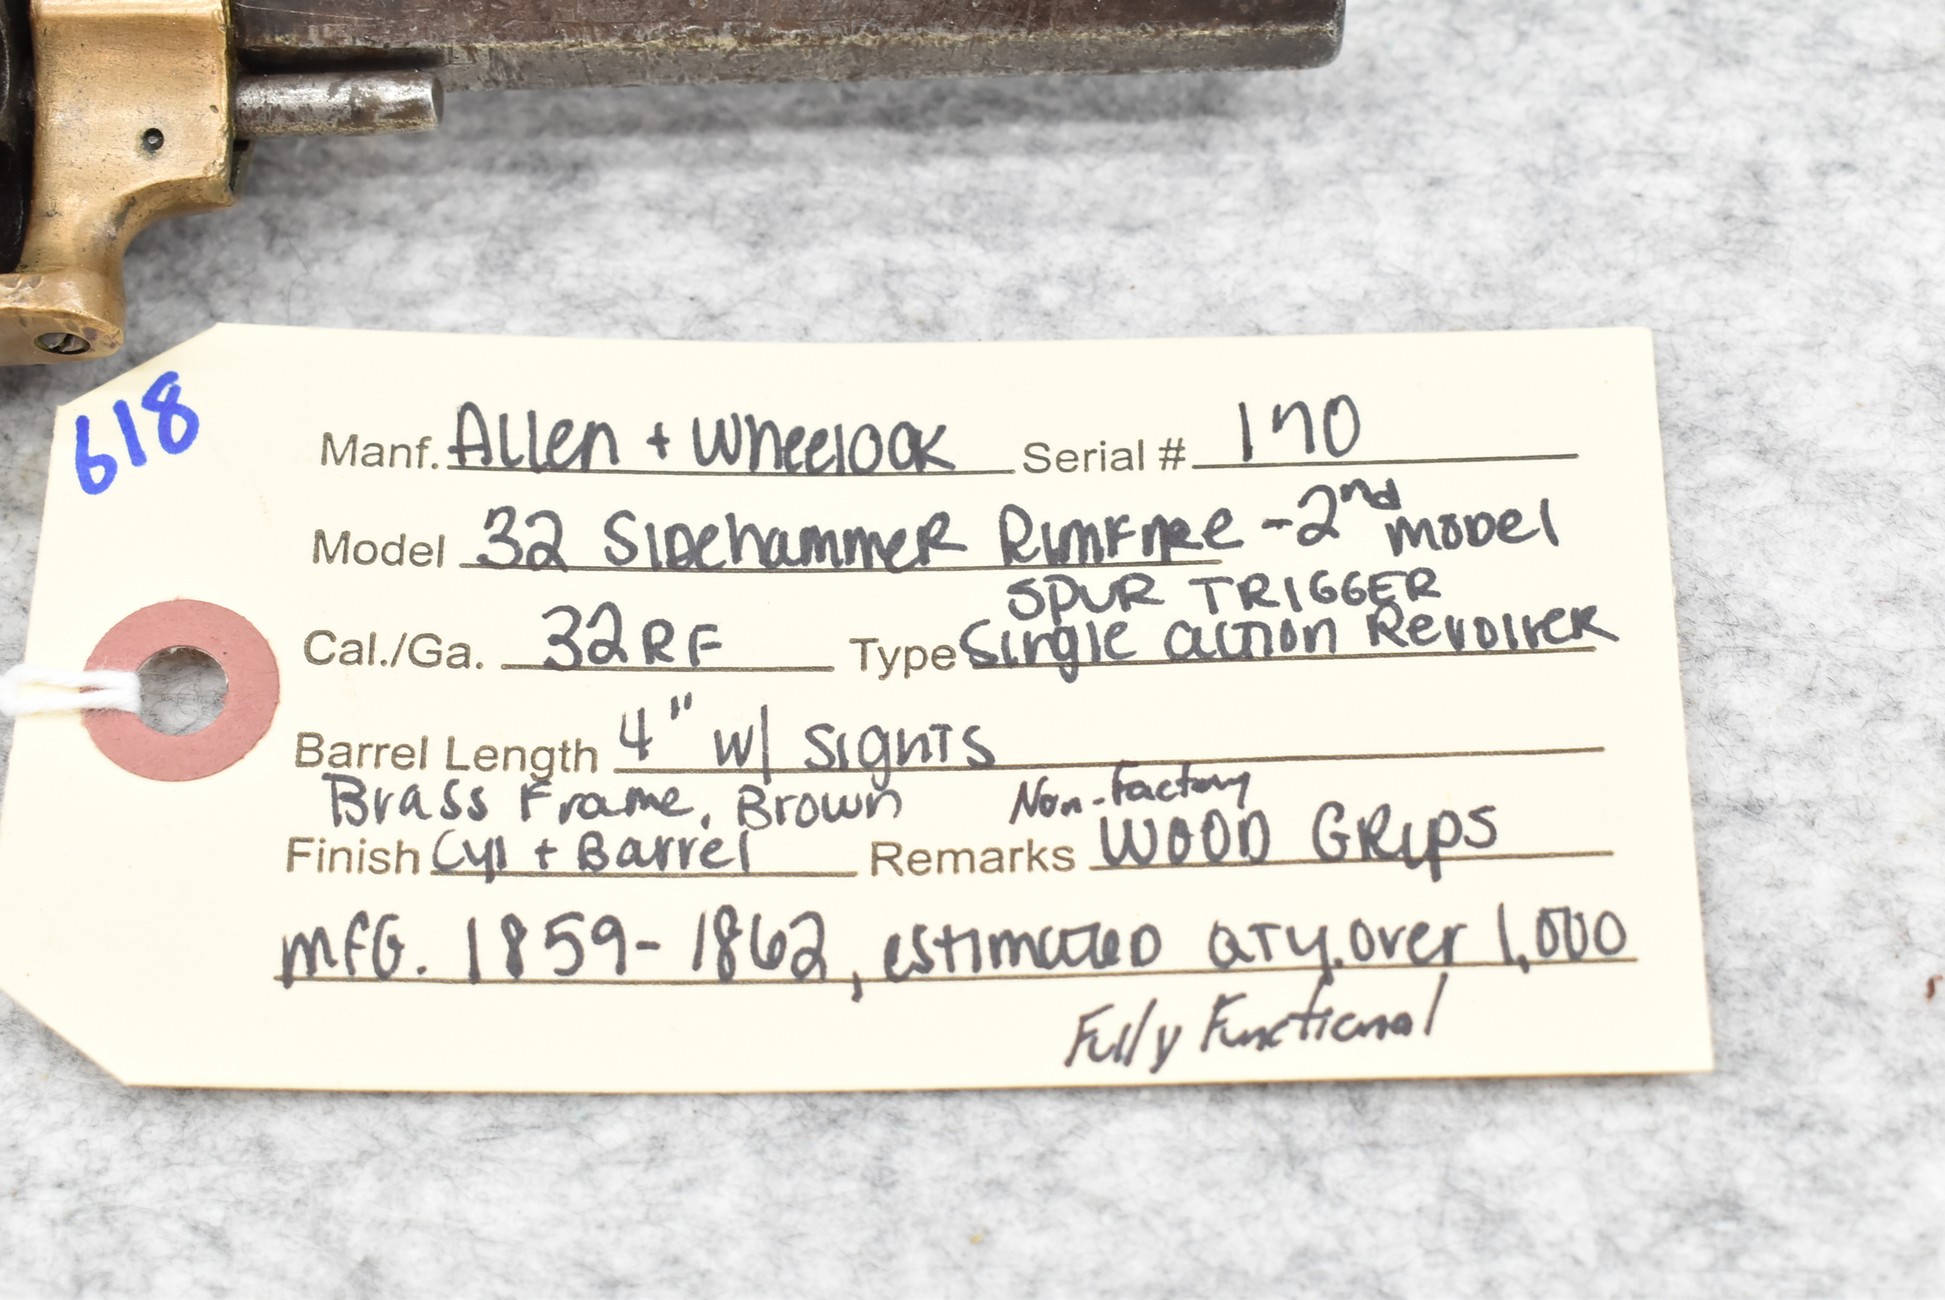 618
Manf. Allen + Wheelock Serial # 170
Model 32 Sidehammer Rimfire - 2nd model
SPUR TRIGGER
Cal./Ga. 32 RF Type Single action Revolver
Barrel Length 4" w/ sights
Brass Frame, Brown Non-Factory
Finish Cyl + Barrel Remarks WOOD GRips
mfg. 1859-1862, estimated qty. over 1,000
Fully Functional